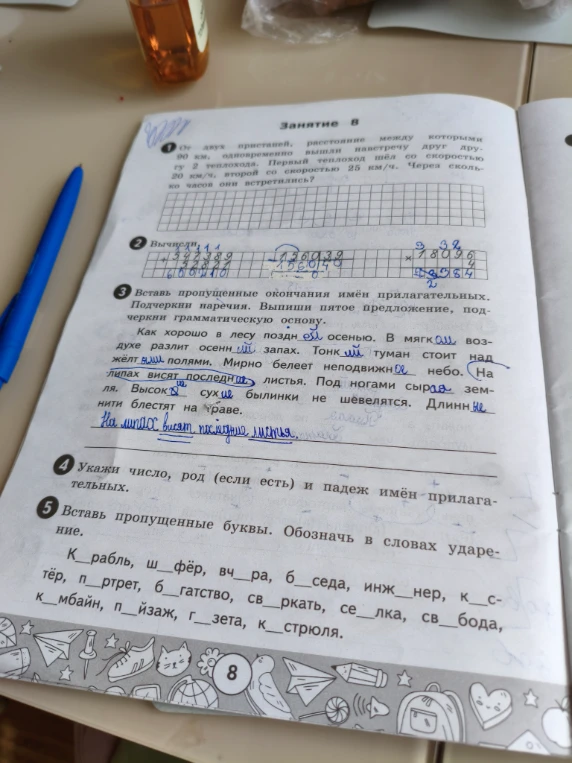 Занятие 8
1 От двух пристаней, расстояние между которыми
90 км, одновременно вышли навстречу друг дру-
гу 2 теплохода. Первый теплоход шёл со скоростью
20 км/ч, второй со скоростью 25 км/ч. Через сколь-
ко часов они встретились?
2 Вычисли.
3 Вставь пропущенные окончания имён прилагательных.
Подчеркни наречия. Выпиши пятое предложение, под-
черкни грамматическую основу.
Как хорошо в лесу поздн ей осенью. В мягк ом воз-
духе разлит осенн ий запах. Тонк ий туман стоит над
жёлт ыми полями. Мирно белеет неподвижн ое небо. На
липах висят последн ие листья. Под ногами сыр ая зем-
ля. Высок ие сух ие былинки не шевелятся. Длинн ые
нити блестят на траве.
На липах висят последние листья.
4 Укажи число, род (если есть) и падеж имён прилага-
тельных.
5 Вставь пропущенные буквы. Обозначь в словах ударе-
ние.
К__рабль, ш__фёр, вч__ра, б__седа, инж__нер, к__с-
тёр, п__ртрет, б__гатство, св__ркать, се__лка, св__бода,
к__мбайн, п__йзаж, г__зета, к__стрюля.
8